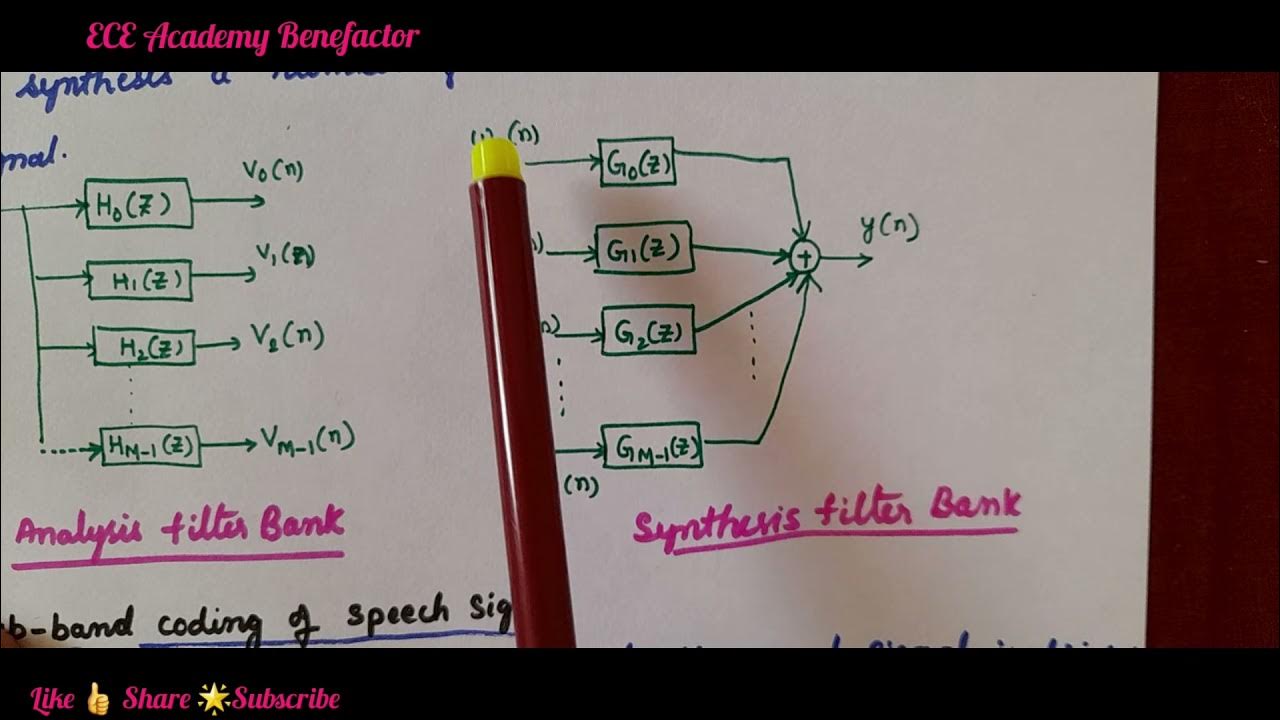 ECE Academy Benefactor
synthesis a
nal.
H0(Z)
V0(n)
H1(Z)
V1(Z)
H2(Z)
V2(n)
HM-1(Z)
VM-1(n)
Analysis filter Bank
(n)
G0(Z)
G1(Z)
G2(Z)
GM-1(Z)
(n)
+
y(n)
Synthesis filter Bank
b-band coding of speech Sig
Like 👍 Share 🌟Subscribe